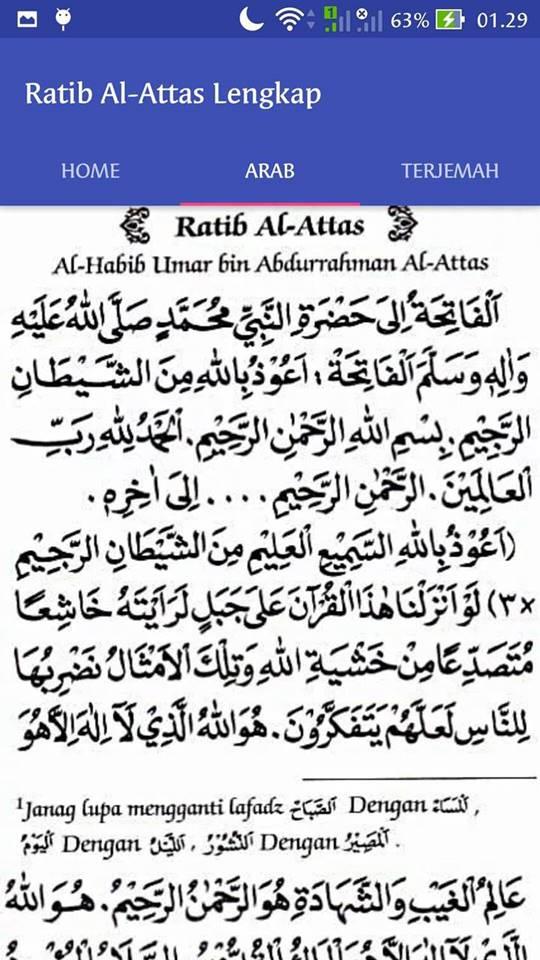 63% 01.29
Ratib Al-Attas Lengkap
HOME ARAB TERJEMAH
Ratib Al-Attas
Al-Habib Umar bin Abdurrahman Al-Attas
اَلْفَاتِحَةُ اِلَى حَضْرَةِ النَّبِيِّ مُحَمَّدٍ صَلَّى اللهُ عَلَيْهِ
وَاٰلِهِ وَسَلَّمَ اَلْفَاتِحَةْ : اَعُوْذُ بِاللهِ مِنَ الشَّيْطَانِ
الرَّجِيْمِ. بِسْمِ اللهِ الرَّحْمٰنِ الرَّحِيْمِ. اَلْحَمْدُ لِلهِ رَبِّ
الْعَالَمِيْنَ. الرَّحْمٰنِ الرَّحِيْمِ .... اِلَى اٰخِرِهِ.
(اَعُوْذُ بِاللهِ السَّمِيْعِ الْعَلِيْمِ مِنَ الشَّيْطَانِ الرَّجِيْمِ
×٣) لَوْ اَنْزَلْنَا هٰذَا الْقُرْآنَ عَلَى جَبَلٍ لَرَاَيْتَهُ خَاشِعًا
مُتَصَدِّعًا مِنْ خَشْيَةِ اللهِ وَتِلْكَ الْاَمْثَالُ نَضْرِبُهَا
لِلنَّاسِ لَعَلَّهُمْ يَتَفَكَّرُوْنَ. هُوَ اللهُ الَّذِيْ لَآ اِلٰهَ اِلَّا هُوَ
¹Janag lupa mengganti lafadz اَلصَّبَاحُ Dengan اَلْمَسَاءُ ,
اَلْيَوْمُ Dengan اَللَّيْلُ , اَلنُّشُوْرُ Dengan اَلْمَصِيْرُ .
عَالِمُ الْغَيْبِ وَالشَّهَادَةِ هُوَ الرَّحْمٰنُ الرَّحِيْمُ. هُوَ اللهُ